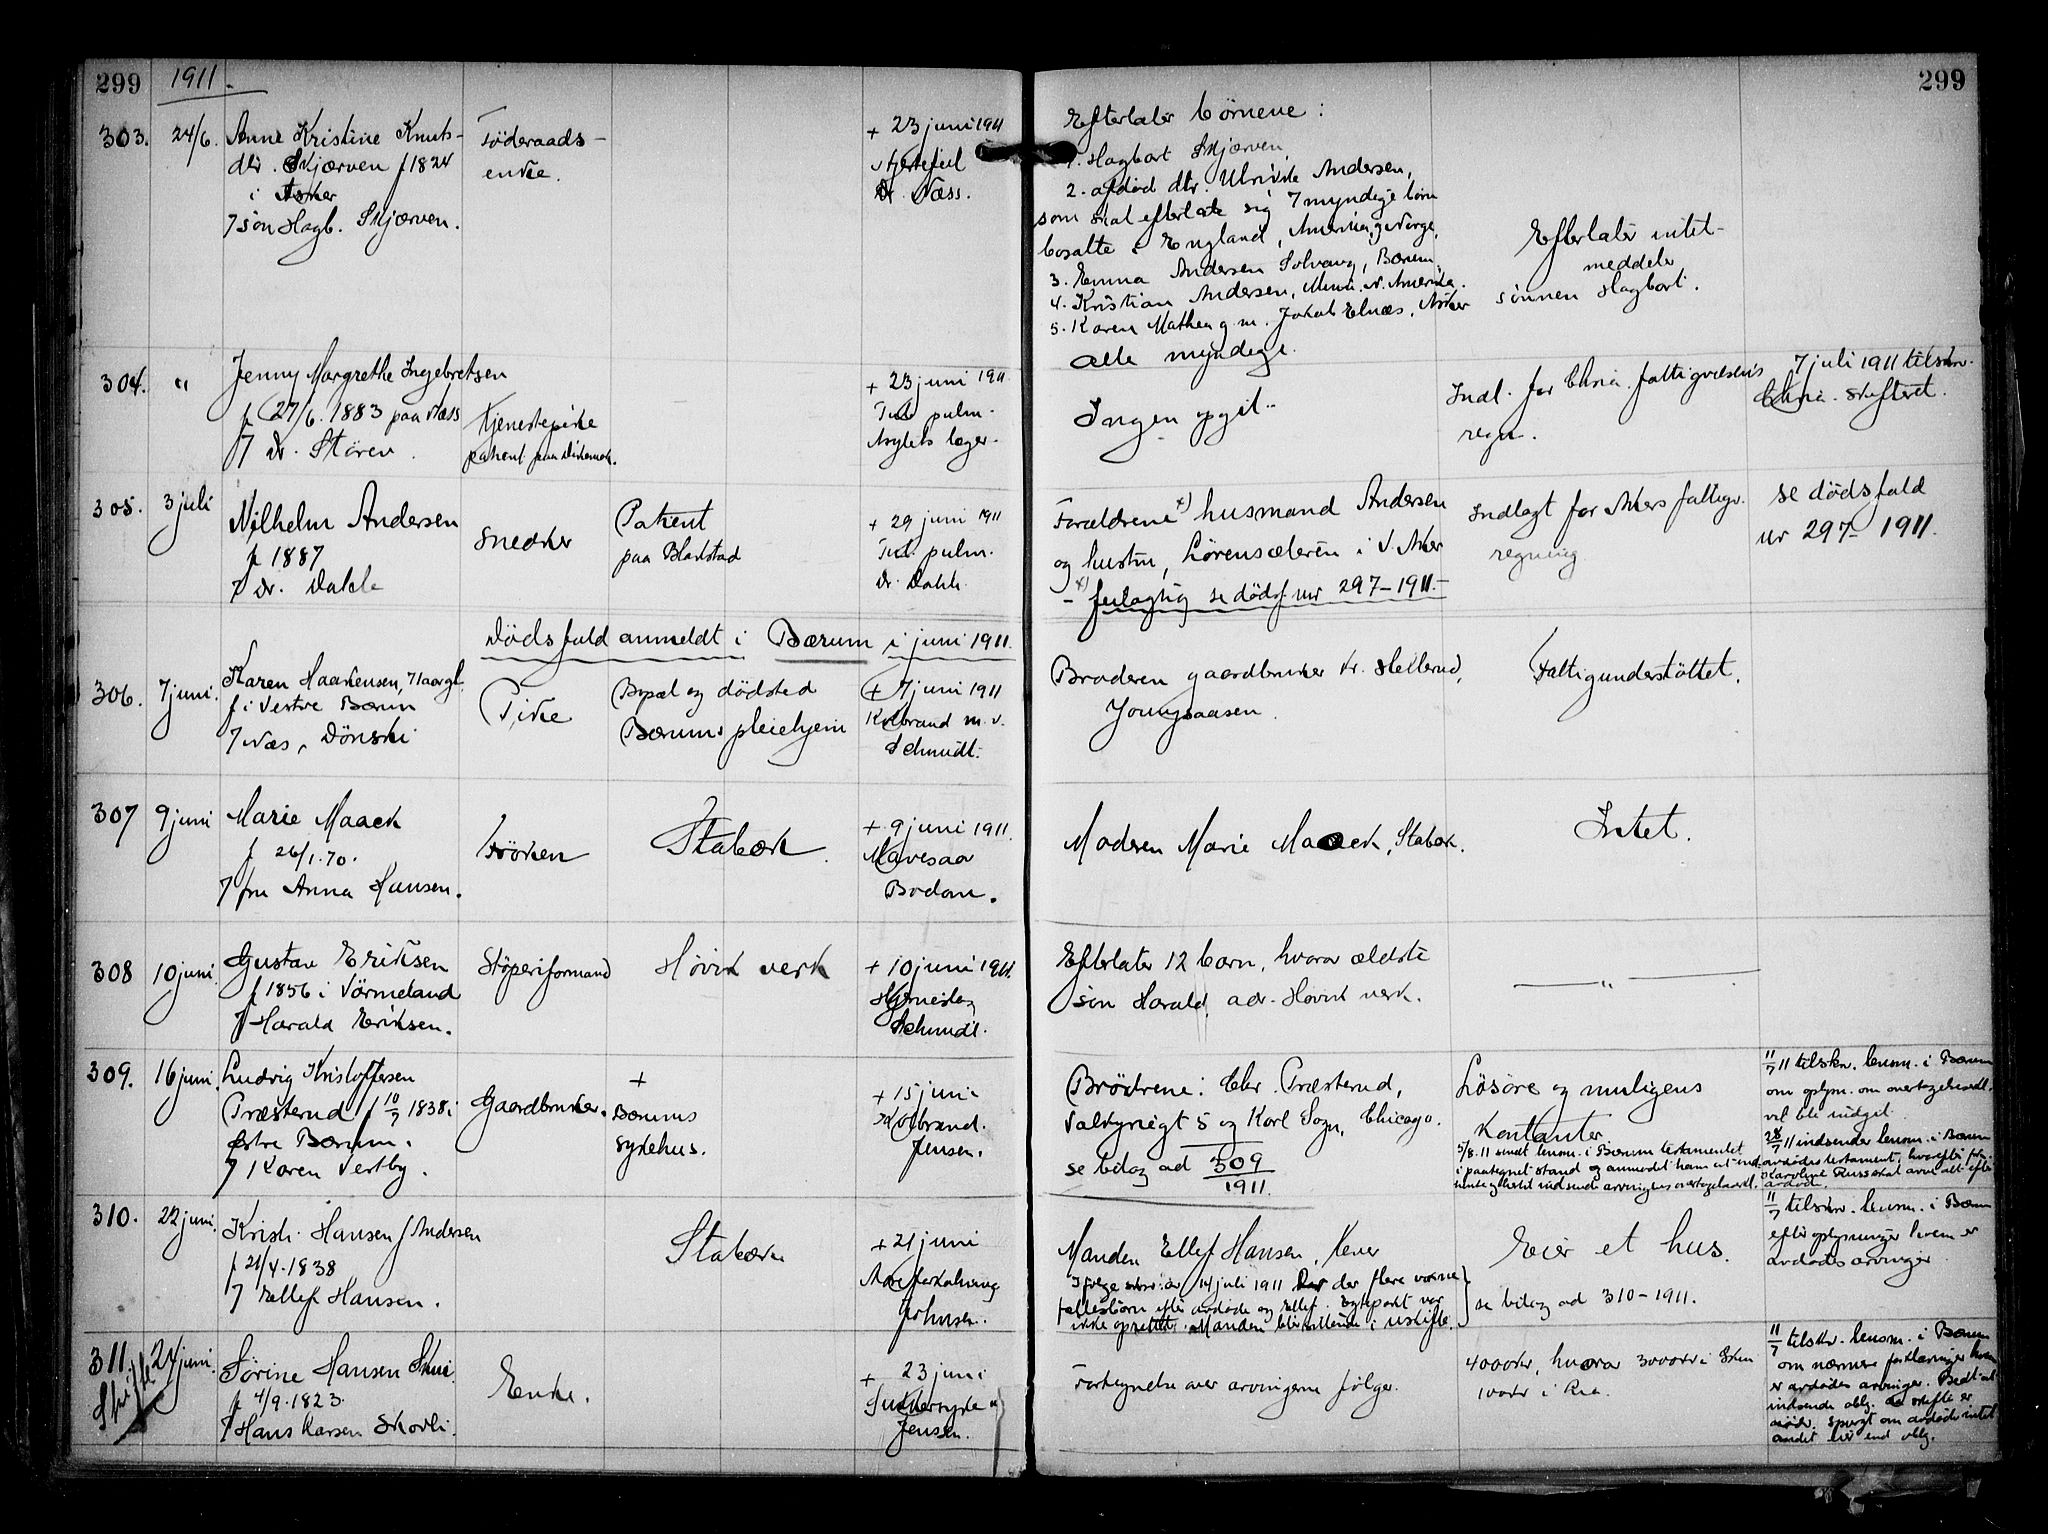 299
1911.
299
303.
24/6.
Anne Kristine Knuts-
dtr. Skjærven f 1824
i Asker
7 søn Hagb. Skjærven.
Föderaads-
enke.
+ 23 juni 1911
Hjertefeil
Dr. Næss.
Efterlater børnene:
1. Hagbart Skjærven
2. afdød dtr. Ulrikke Andersen,
som skal efterlate sig 7 myndige børn
bosatte i England, Amerika, Norge.
3. Emma Andersen Solvang, Bærum
4. Kristian Andersen, N. Amerika.
5. Karen Mathea g. m. Jakob Elnæs, Asker
alle myndige.
Efterlater intet
meddeler
sönnen Hagbart.
304.
"
Jenny Margrethe Ingebretsen
f 27/6. 1883 paa Næss
7 Dr. Stören
Tjenestepike
patient paa Dikemark.
+ 23 juni 1911
Tub. pulm.
Asylets læge
Ingen opgit.
Indl. for Chria. fattigvæsens
regn.
7 juli 1911 tilskr.
Chria. skifteret.
305.
3 juli
Vilhelm Andersen
f 1887
7 Dr. Dahle
Snedker
Patient
paa Blakstad
+ 29 juni 1911
Tub. pulm.
Dr. Dahle
Forældrene x) husmand Andersen
og hustru, Lörensæteren i V. Aker
- x) feilagtig se dødsf nr 297-1911.-
Indlagt for Akers fattigv.
regning
se dødsfald
nr 297- 1911.
Dödsfald anmeldt i Bærum i juni 1911.
306.
7 juni.
Karen Haakensen, 71 aar gl.
f. i Vestre Bærum
7 Næs, Dönski
Pike
Bopæl og dödsted
Bærums pleiehjem
+ 7 juni 1911
Kolbrand m. v.
Schmidt.
Broderen gaardbruker Kr. Hellerud,
Jongsaasen.
Fattigunderstöttet.
307
9 juni
Marie Maack
f 26/1.70.
7 fru Anna Hansen.
Fröken
Stabæk
+ 9 juni 1911.
Mavesaar
Moderen Marie Maack, Stabæk.
Intet.
308
10 juni
Gustav Eriksen
f 1856 i Värmeland
7 Harald Eriksen.
Stöperiformand
Hövik verk
+ 10 juni 1911.
Hjerneslag
Schmidt.
Efterlater 12 barn, hvorav ældste
sön Harald, adr. Hövik verk.
— " —
309.
16 juni.
Ludvig Kristoffersen
Præsterud f 10/7 1838 i
Østre Bærum.
7 Karen Vestby.
Gaardbruker.
+
Bærums
sykehus.
+ 15 juni
Kolbrand.
Jensen.
Brödrene: Chr. Præsterud,
Valkyriegt 5 og Karl Sogn, Chicago.
se bilag ad 309
1911.
Lösöre og muligens
Kontanter
5/8.11 sendt lensm. i Bærum testamentet
11/7 11 tilskr. lensm. i Bærum
om oplysn. om overtagelseserkl.
vil bli utdget.
28/7 11 indsender lensm. i Bærum
avdödes testament, hvorefter frk.
310.
22 juni.
Krist. Hansen f Andersen
f 21/4.1838
7 Ellef Hansen.
Stabæk
+ 21 juni
Aareforkalkning
Johnsen.
Manden Ellef Hansen, Kever
Ifölge skr. av 14 juli 1911 har der flere voksne
fællesbörn efter avdöde og Ellef. Egtepakt var
ikke oprettet. Manden blir sittende i uskifte.
Eier et hus.
se bilag ad 310-1911.
11/7 tilskr. lensm. i Bærum
efter oplysninger hvem er
avdödes arvinger
311.
24 juni.
Skifte
Sörine Hansen Skui
f 4/9.1823.
7 Hans Larsen Skovli.
Enke.
+ 23 juni
Sukkersyke
Jensen.
Fortegnelse over arvingerne fölger.
4000 kr, hvorav 3000 kr i
11/7 tilskr. lensm. i Bærum
om nærmere forklaringer hvem
er avdödes arvinger. Bedt at
indsende oblg.
Spurgt om avdöde intet
andet eier end oblg.